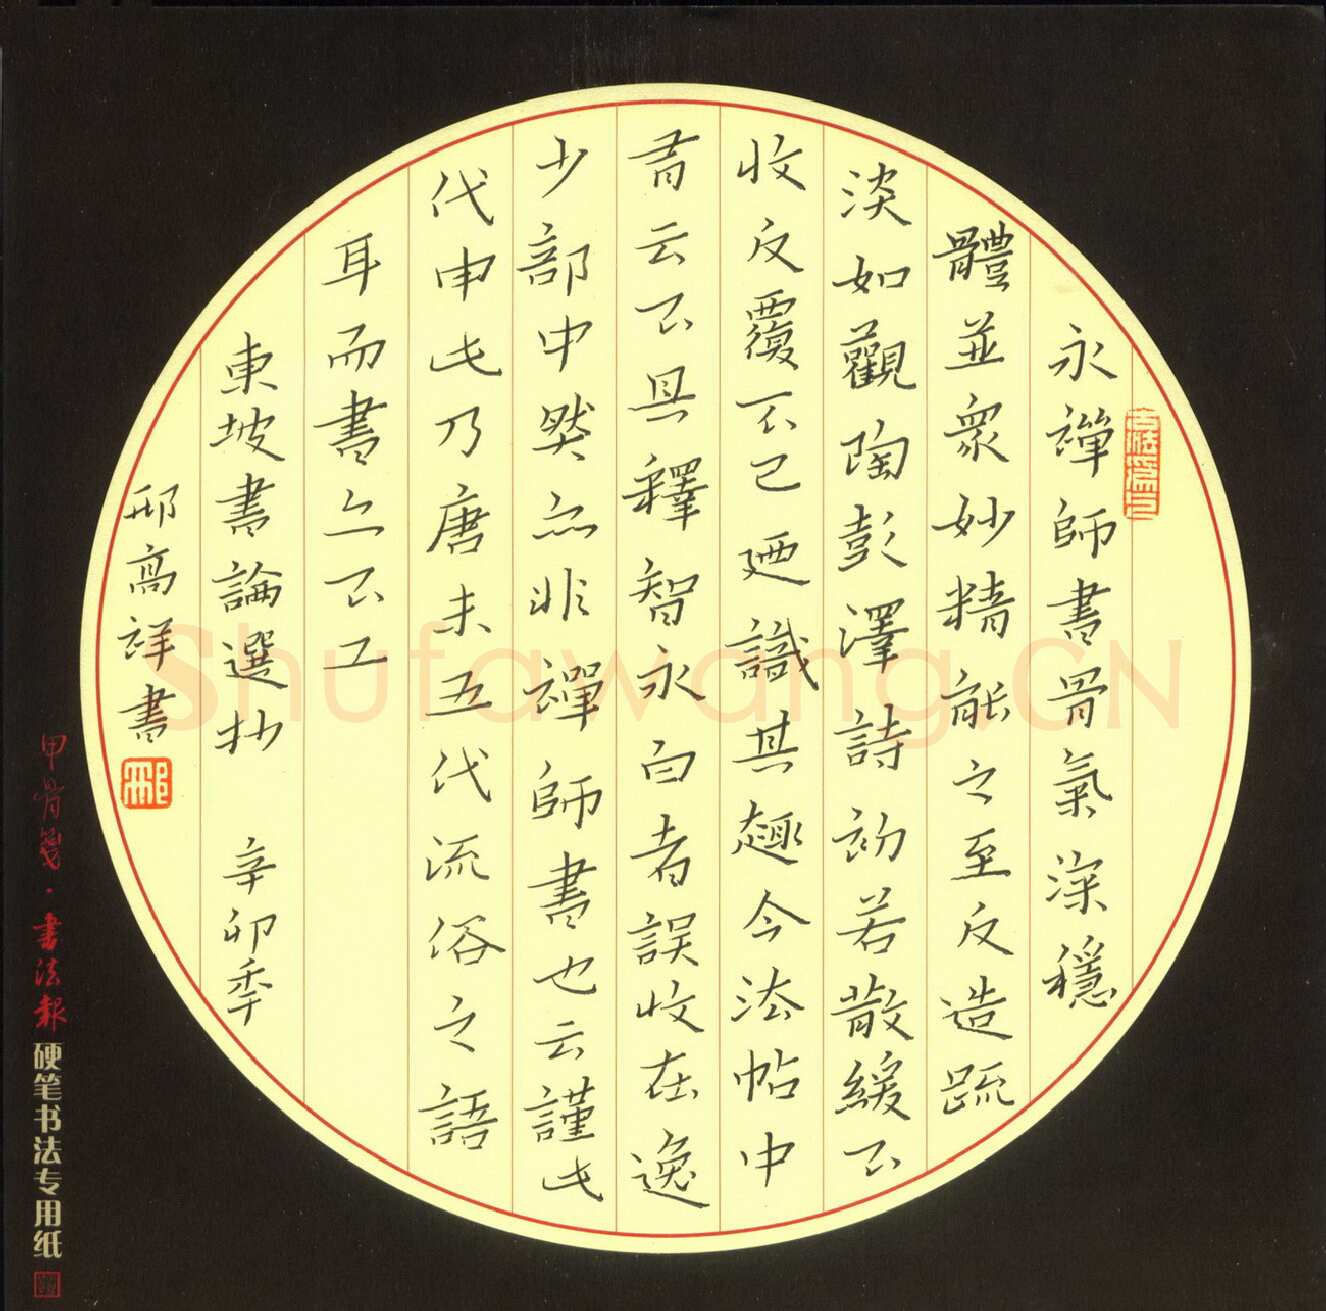 永禪師書骨氣深穩
體並衆妙精能之至反造疏
淡如觀陶彭澤詩初若散緩不
收反覆不已廼識其趣今法帖中
有云不具釋智永白者誤收在逸
少部中然亦非禪師書也云謹此
代申此乃唐末五代流俗之語
耳而書亦不工
東坡書論選抄 辛卯季
邢高祥書
邢
甲骨箋·書法報
硬笔书法专用纸
Shufawang.CN